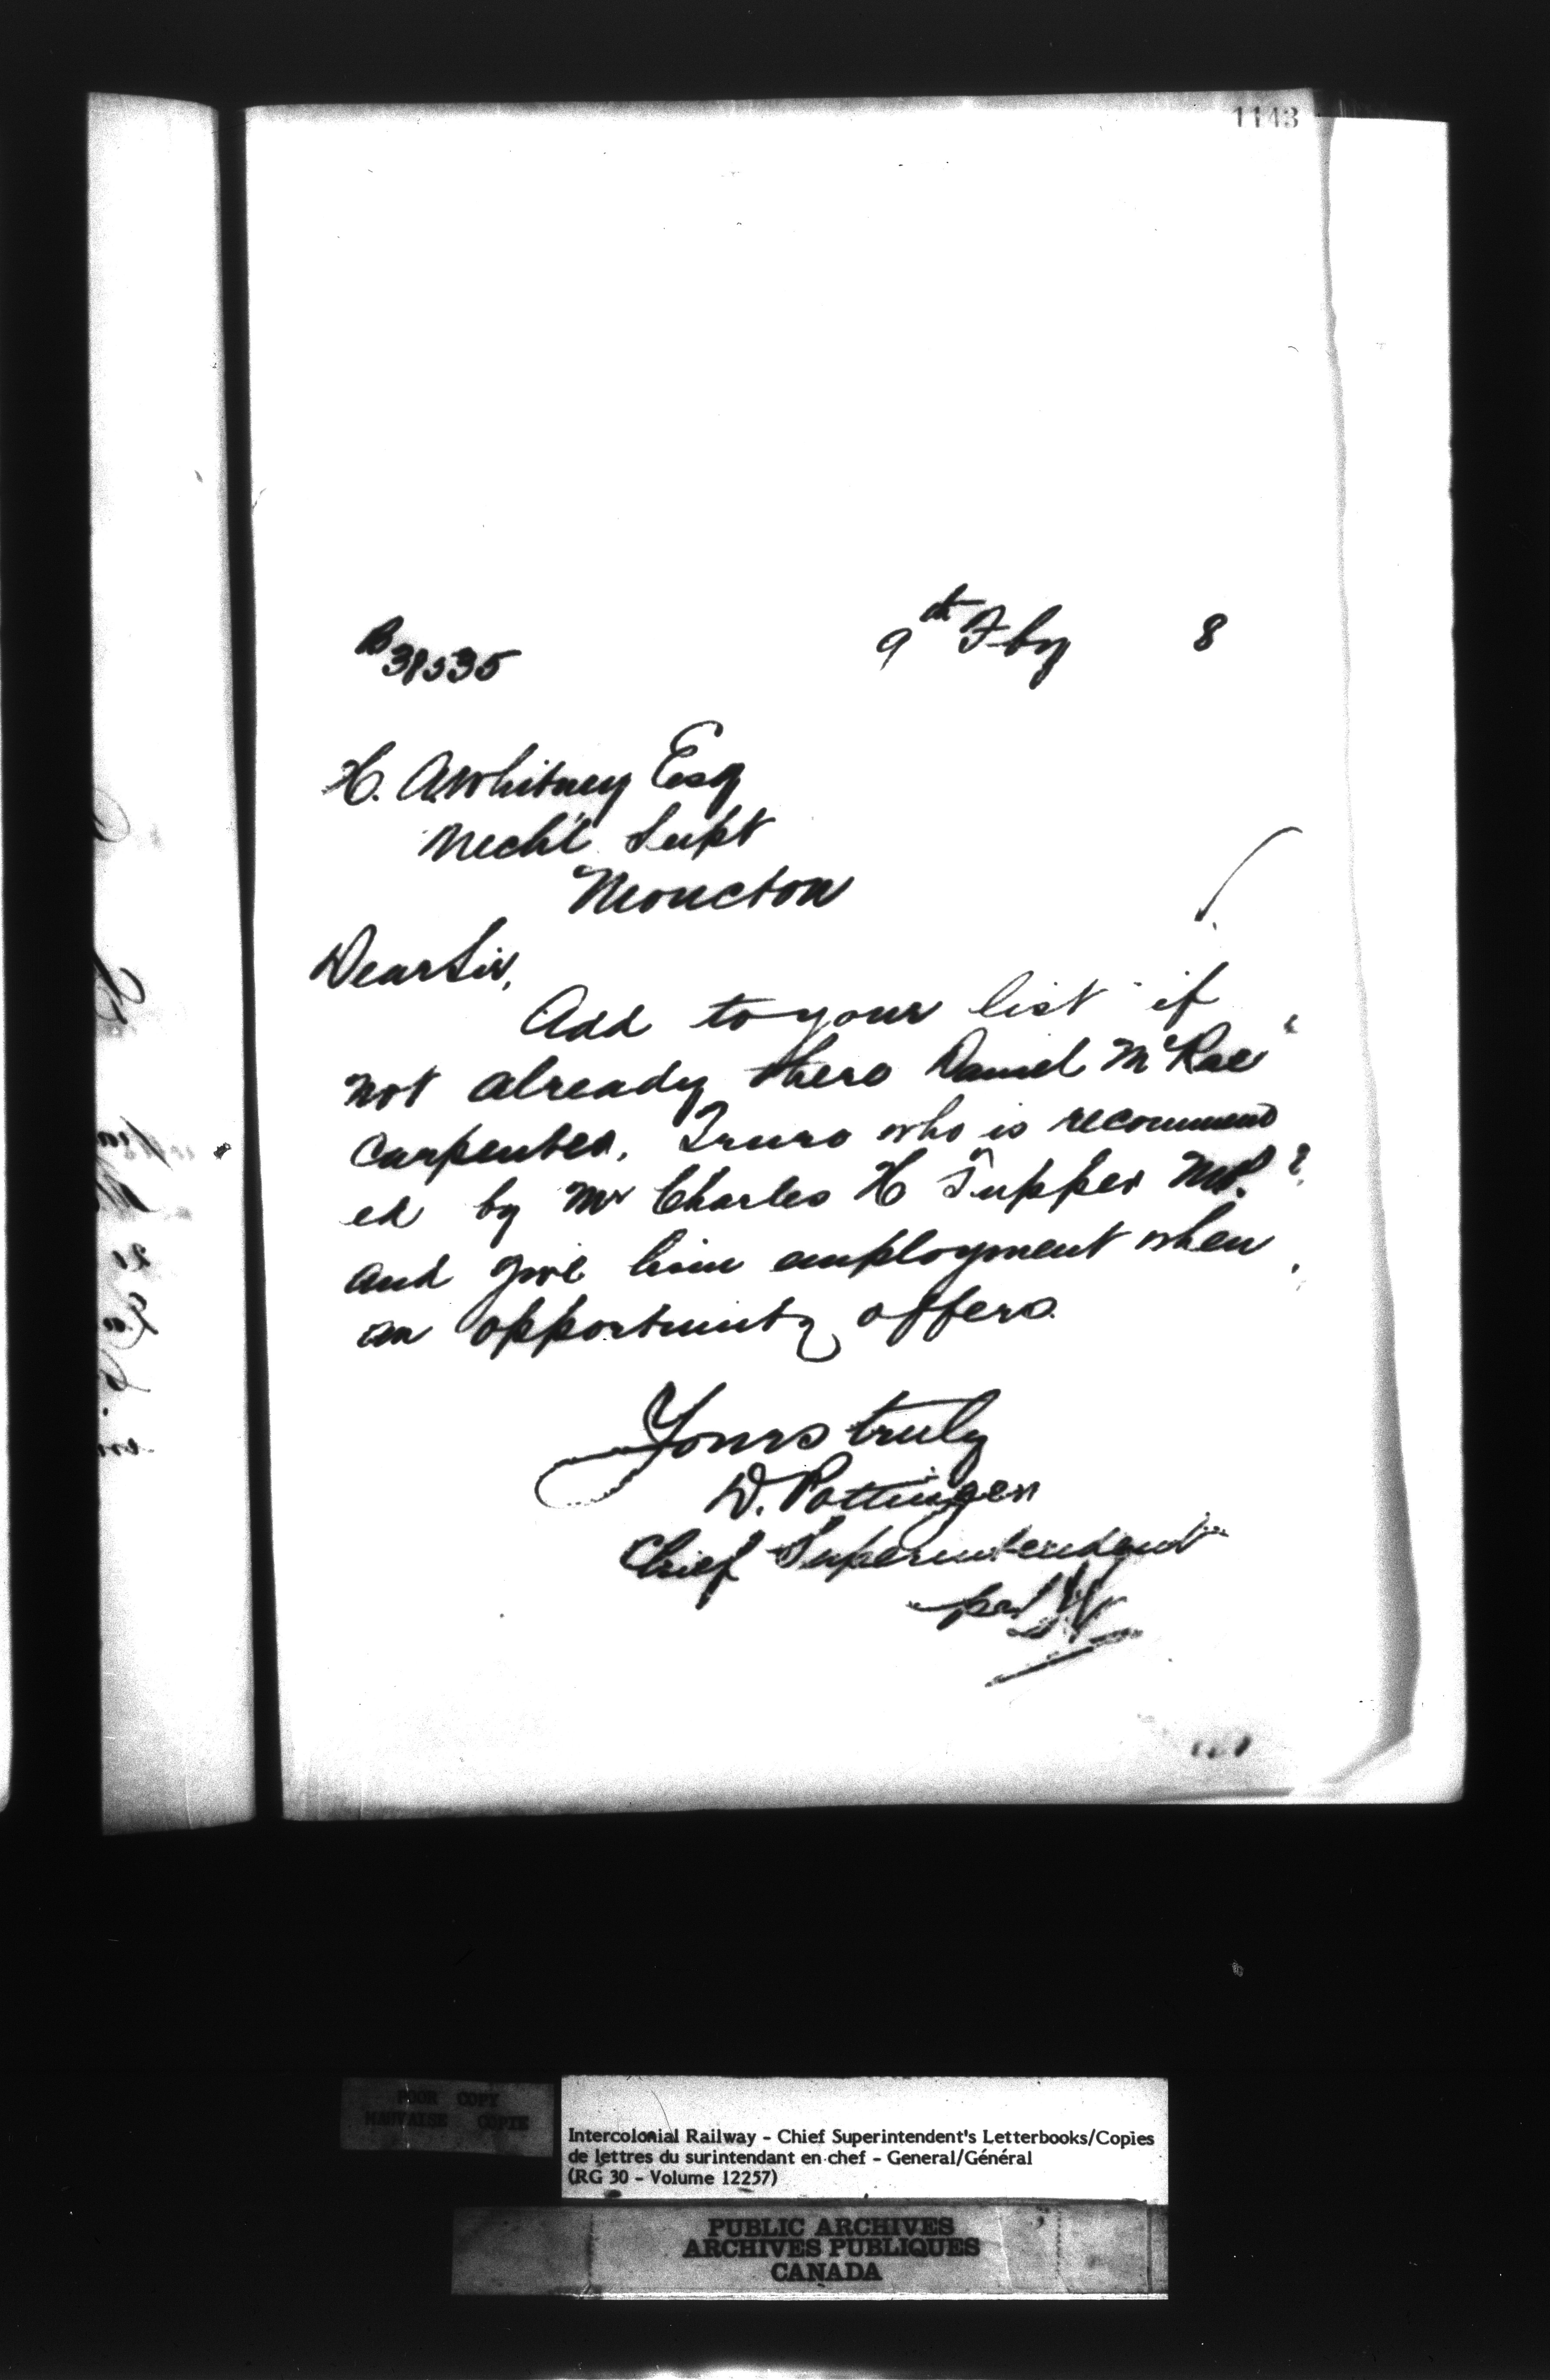 1143
B 38535 9th Fby 8
H. A. Whitney Esq
Mechl Supt
Moncton
Dear Sir,
Add to your list if
not already there Daniel McRae
Carpenter, Truro who is recommend
ed by Mr Charles H Tupper M.P.
and give him employment when
an opportunity offers.
Yours truly
D. Pottinger
Chief Superintendent
per
POOR COPY
MAUVAISE COPIE
Intercolonial Railway - Chief Superintendent's Letterbooks/Copies
de lettres du surintendant en chef - General/Général
(RG 30 - Volume 12257)
PUBLIC ARCHIVES
ARCHIVES PUBLIQUES
CANADA